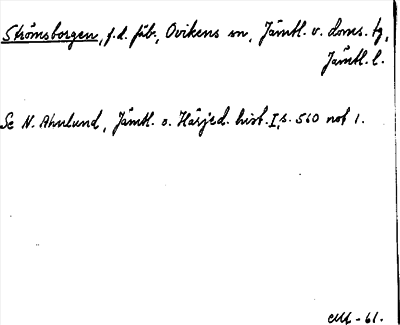 Strömsborgen, f.d. fäb., Ovikens sn, Jämtl. v. doms. tg,
Jämtl. l.
Se N. Ahnlund, Jämtl. o. Härjed. hist. I, s. 560 not 1.
-61.